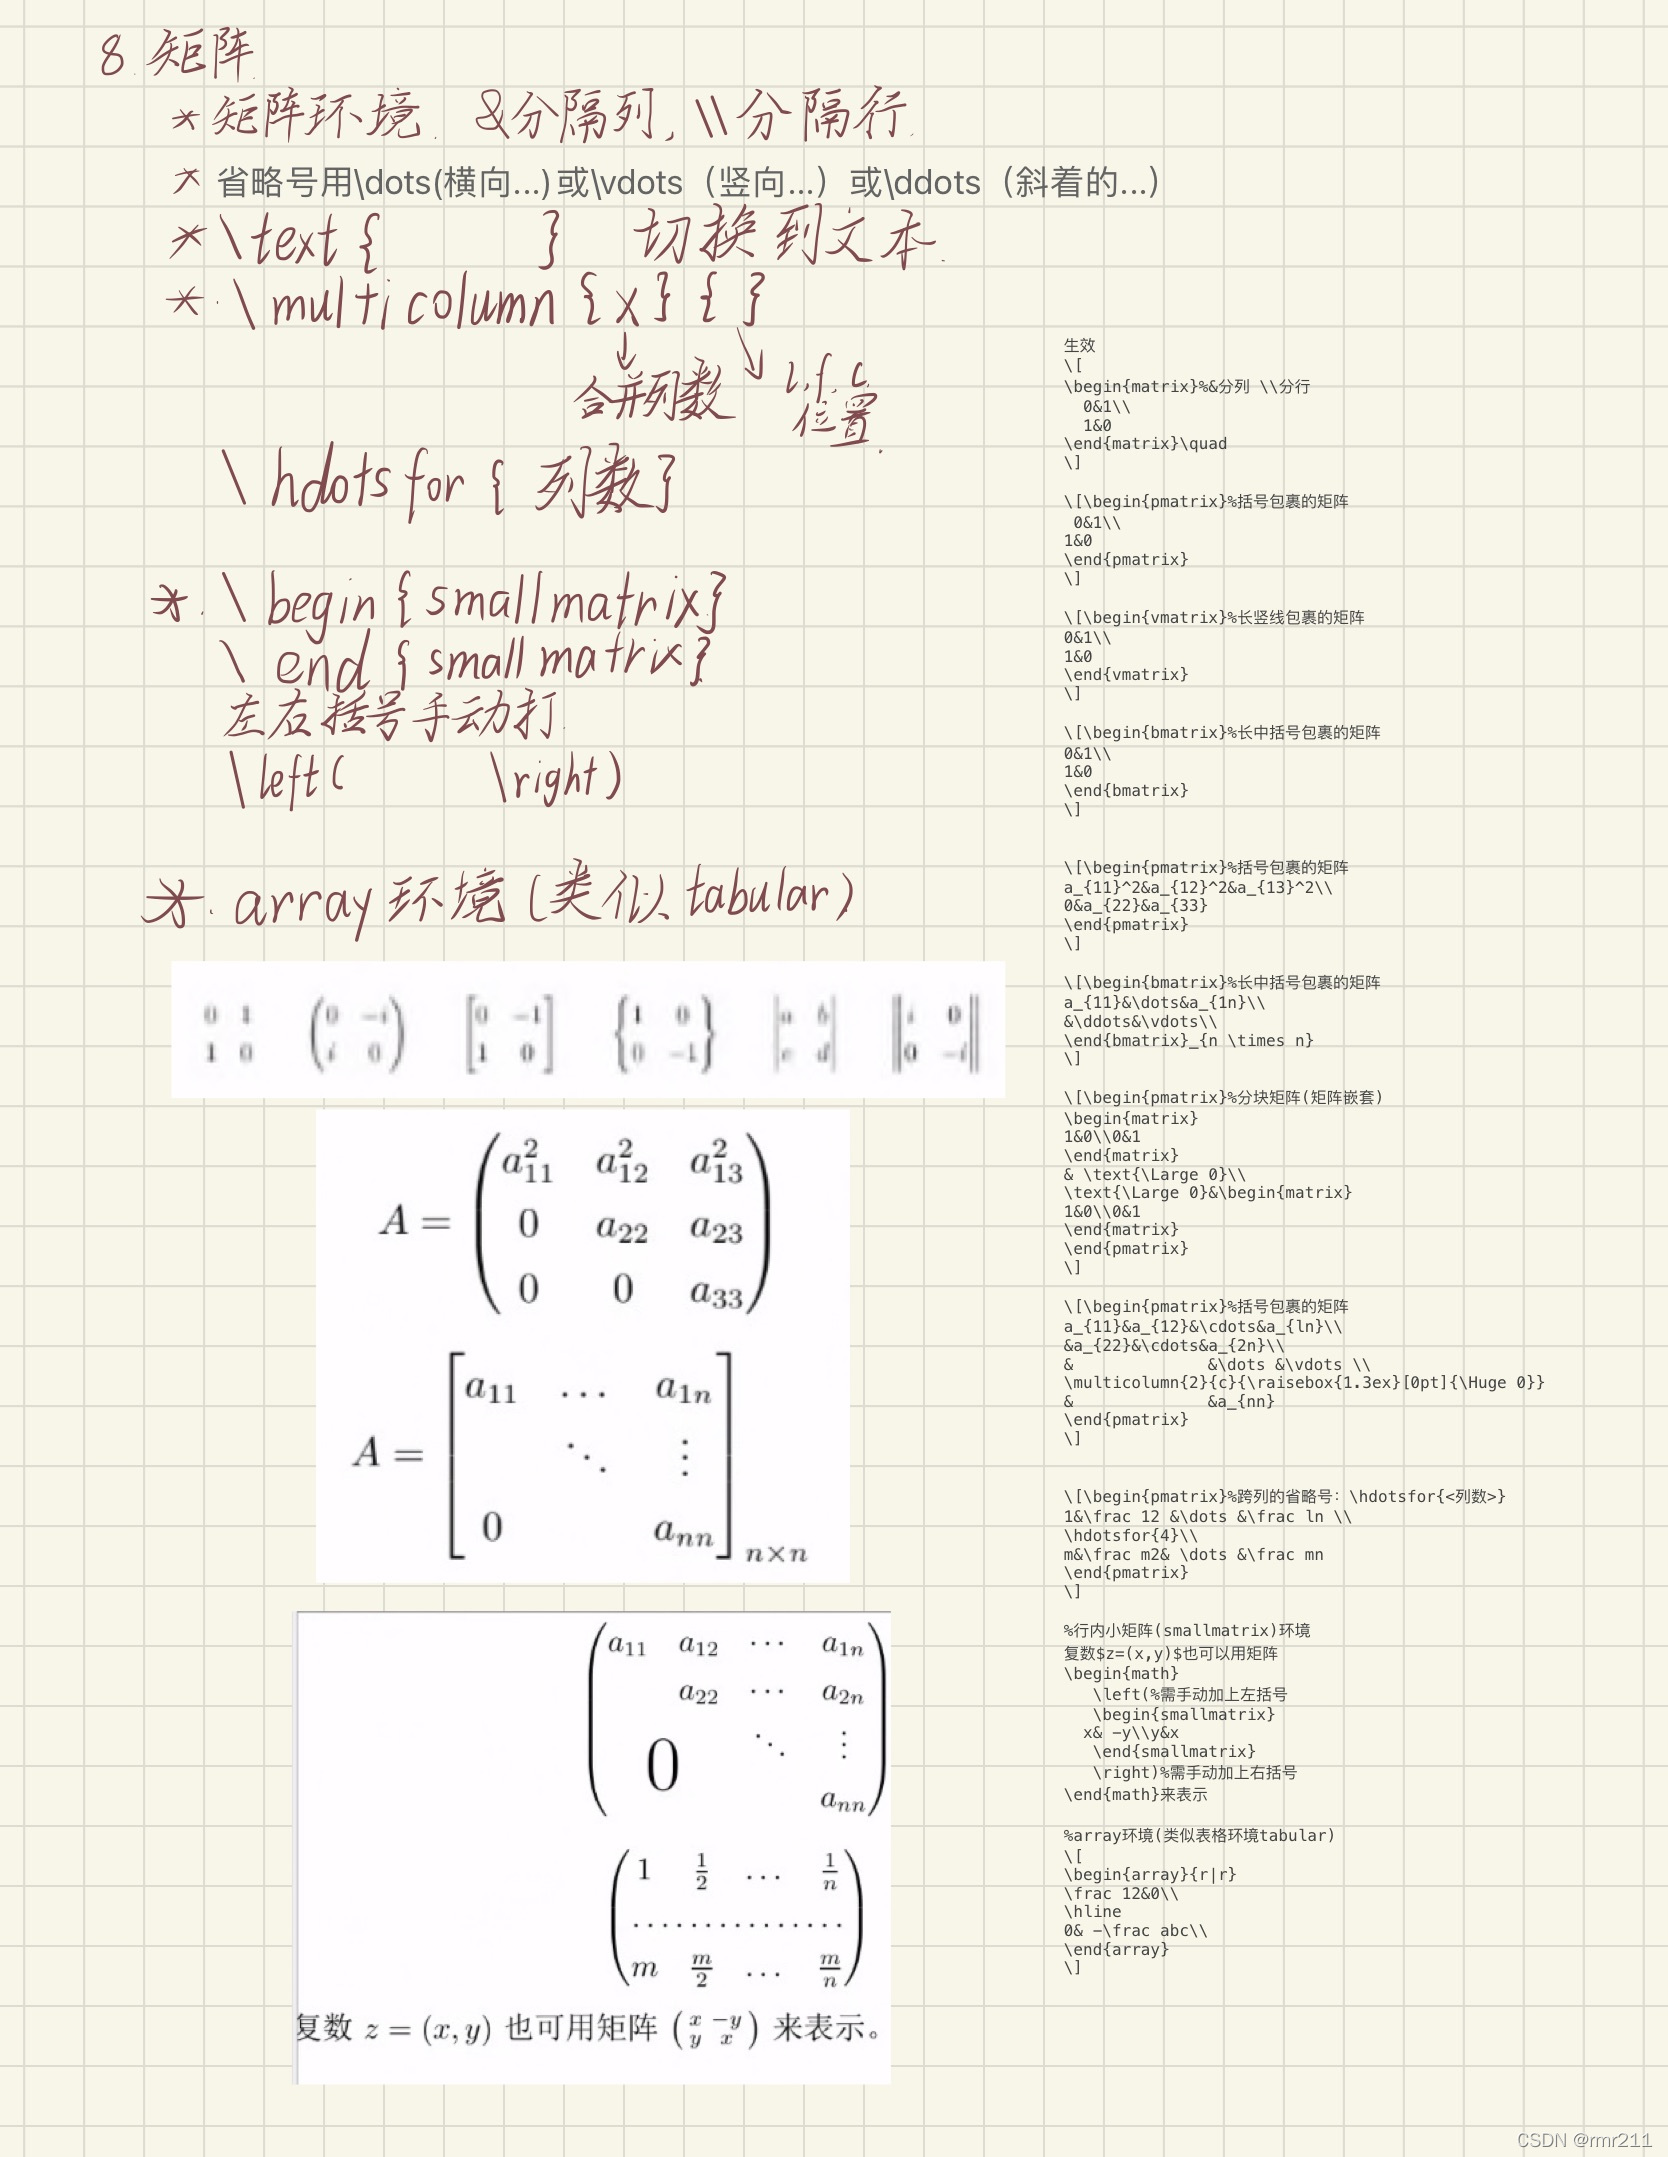 8. 矩阵
* 矩阵环境. &分隔列, \\分隔行.
* 省略号用\dots(横向...)或\vdots（竖向...）或\ddots（斜着的...）
* \text{ } 切换到文本.
* \multicolumn{x}{ }
合并列数 l,f,c,
位置.
\hdotsfor{列数}
*. \begin{smallmatrix}
\end{smallmatrix}
左右括号手动打.
\left( \right)
*. array环境(类似tabular)
0 1 (0 -i) [0 -1] {1 0} |a b| ‖i 0‖
1 0 (i 0) [1 0] {0 -1} |c d| ‖0 -i‖
a_{11}^2 a_{12}^2 a_{13}^2
A = 0 a_{22} a_{23}
0 0 a_{33}
a_{11} … a_{1n}
A = ⋱ ⋮
0 a_{nn} n×n
a_{11} a_{12} ⋯ a_{1n}
a_{22} ⋯ a_{2n}
0 ⋱ ⋮
a_{nn}
1 1/2 … 1/n
...............
m m/2 … m/n
复数 z = (x, y) 也可用矩阵 (x −y y x) 来表示。
生效
\[
\begin{matrix}%&分列 \\分行
0&1\\
1&0
\end{matrix}\quad
\]
\[\begin{pmatrix}%括号包裹的矩阵
0&1\\
1&0
\end{pmatrix}
\]
\[\begin{vmatrix}%长竖线包裹的矩阵
0&1\\
1&0
\end{vmatrix}
\]
\[\begin{bmatrix}%长中括号包裹的矩阵
0&1\\
1&0
\end{bmatrix}
\]
\[\begin{pmatrix}%括号包裹的矩阵
a_{11}^2&a_{12}^2&a_{13}^2\\
0&a_{22}&a_{33}
\end{pmatrix}
\]
\[\begin{bmatrix}%长中括号包裹的矩阵
a_{11}&\dots&a_{1n}\\
&\ddots&\vdots\\
\end{bmatrix}_{n \times n}
\]
\[\begin{pmatrix}%分块矩阵(矩阵嵌套)
\begin{matrix}
1&0\\0&1
\end{matrix}
& \text{\Large 0}\\
\text{\Large 0}&\begin{matrix}
1&0\\0&1
\end{matrix}
\end{pmatrix}
\]
\[\begin{pmatrix}%括号包裹的矩阵
a_{11}&a_{12}&\cdots&a_{ln}\\
&a_{22}&\cdots&a_{2n}\\
& &\dots &\vdots \\
\multicolumn{2}{c}{\raisebox{1.3ex}[0pt]{\Huge 0}}
& &a_{nn}
\end{pmatrix}
\]
\[\begin{pmatrix}%跨列的省略号：\hdotsfor{<列数>}
1&\frac 12 &\dots &\frac ln \\
\hdotsfor{4}\\
m&\frac m2& \dots &\frac mn
\end{pmatrix}
\]
%行内小矩阵(smallmatrix)环境
复数$z=(x,y)$也可以用矩阵
\begin{math}
\left(%需手动加上左括号
\begin{smallmatrix}
x& -y\\y&x
\end{smallmatrix}
\right)%需手动加上右括号
\end{math}来表示
%array环境(类似表格环境tabular)
\[
\begin{array}{r|r}
\frac 12&0\\
\hline
0& -\frac abc\\
\end{array}
\]
CSDN @rmr211